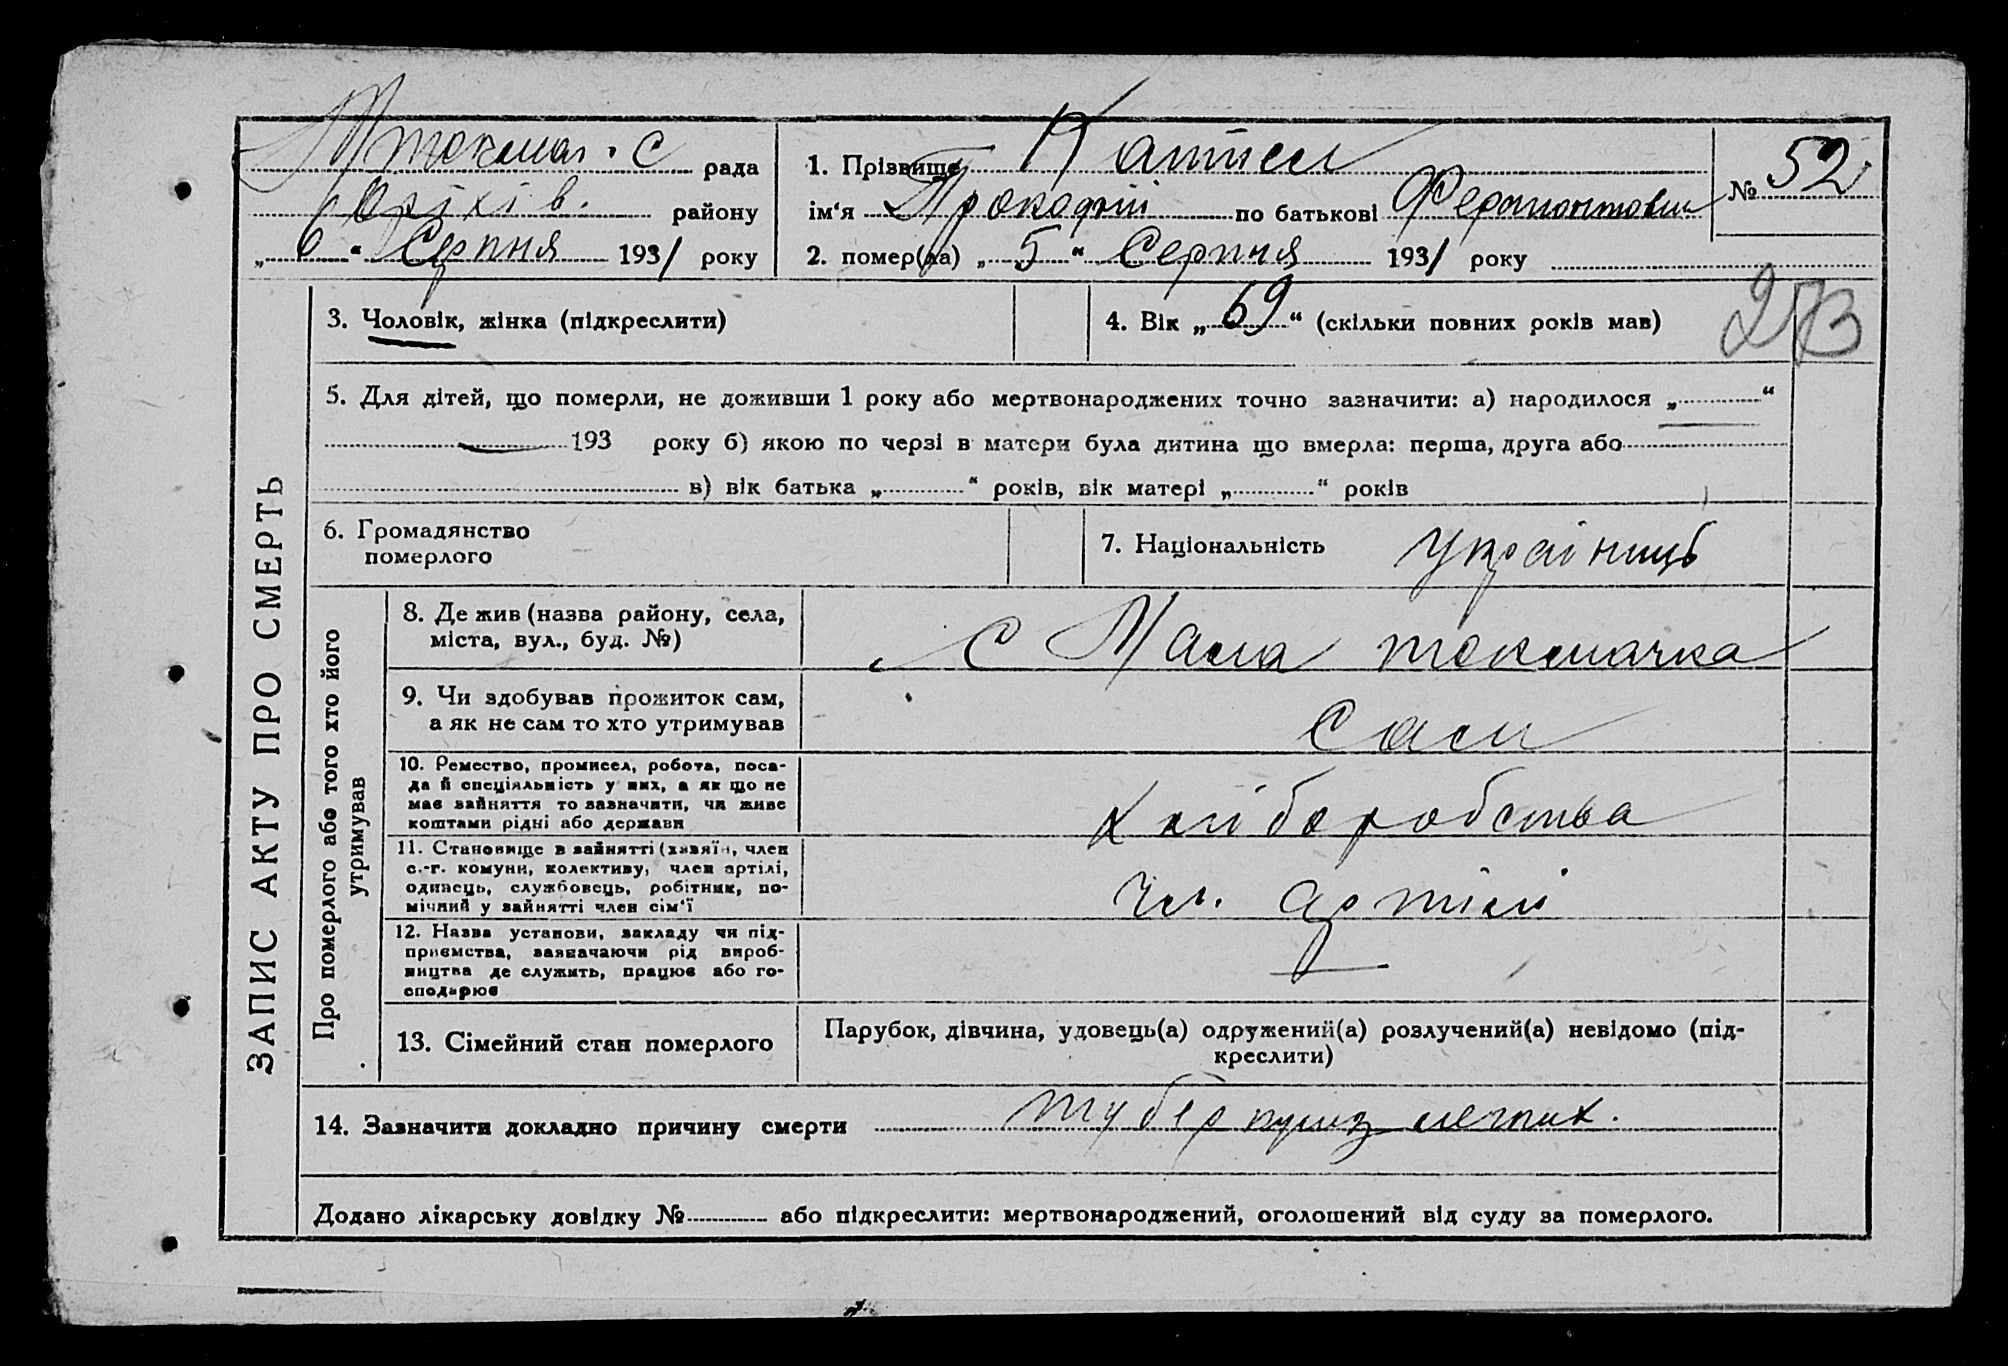 М токмач. С рада
Оріхів. району
„ 6 “ Серпня 1931 року
1. Прізвище
ім‘я Прокофій по батькові
№ 52
2. помер(ла) „ 5 “ Серпня 1931 року
273
ЗАПИС АКТУ ПРО СМЕРТЬ
3. Чоловік, жінка (підкреслити)
4. Вік „ 69 “ (скільки повних років мав)
5. Для дітей, що померли, не доживши 1 року або мертвонароджених точно зазначити: а) народилося „ “
193 року б) якою по черзі в матери була дитина що вмерла: перша, друга або
в) вік батька „ “ років, вік матері „ “ років
6. Громадянство
померлого
7. Національність українець
Про померлого або того хто його
утримував
8. Де жив (назва району, села,
міста, вул., буд. №)
С Мала токмачка
9. Чи здобував прожиток сам,
а як не сам то хто утримував
Сам
10. Ремество, промисел, робота, поса-
да й спеціяльність у них, а як що не
має зайняття то зазначити, чи живе
коштами рідні або держави
хліборобства
11. Становище в зайнятті (хазяїн, член
с.-г. комуни, колективу, член артілі,
одинець, службовець, робітник, по-
мічний у зайнятті член сім‘ї
Чл. артілі
12. Назва установи, закладу чи під-
приємства, зазначаючи рід вироб-
ництва де служить, працює або го-
сподарює
13. Сімейний стан померлого
Парубок, дівчина, удовець(а) одружений(а) розлучений(а) невідомо (під-
креслити)
14. Зазначити докладно причину смерти туберкульз легких.
Додано лікарську довідку № або підкреслити: мертвонароджений, оголошений від суду за померлого.